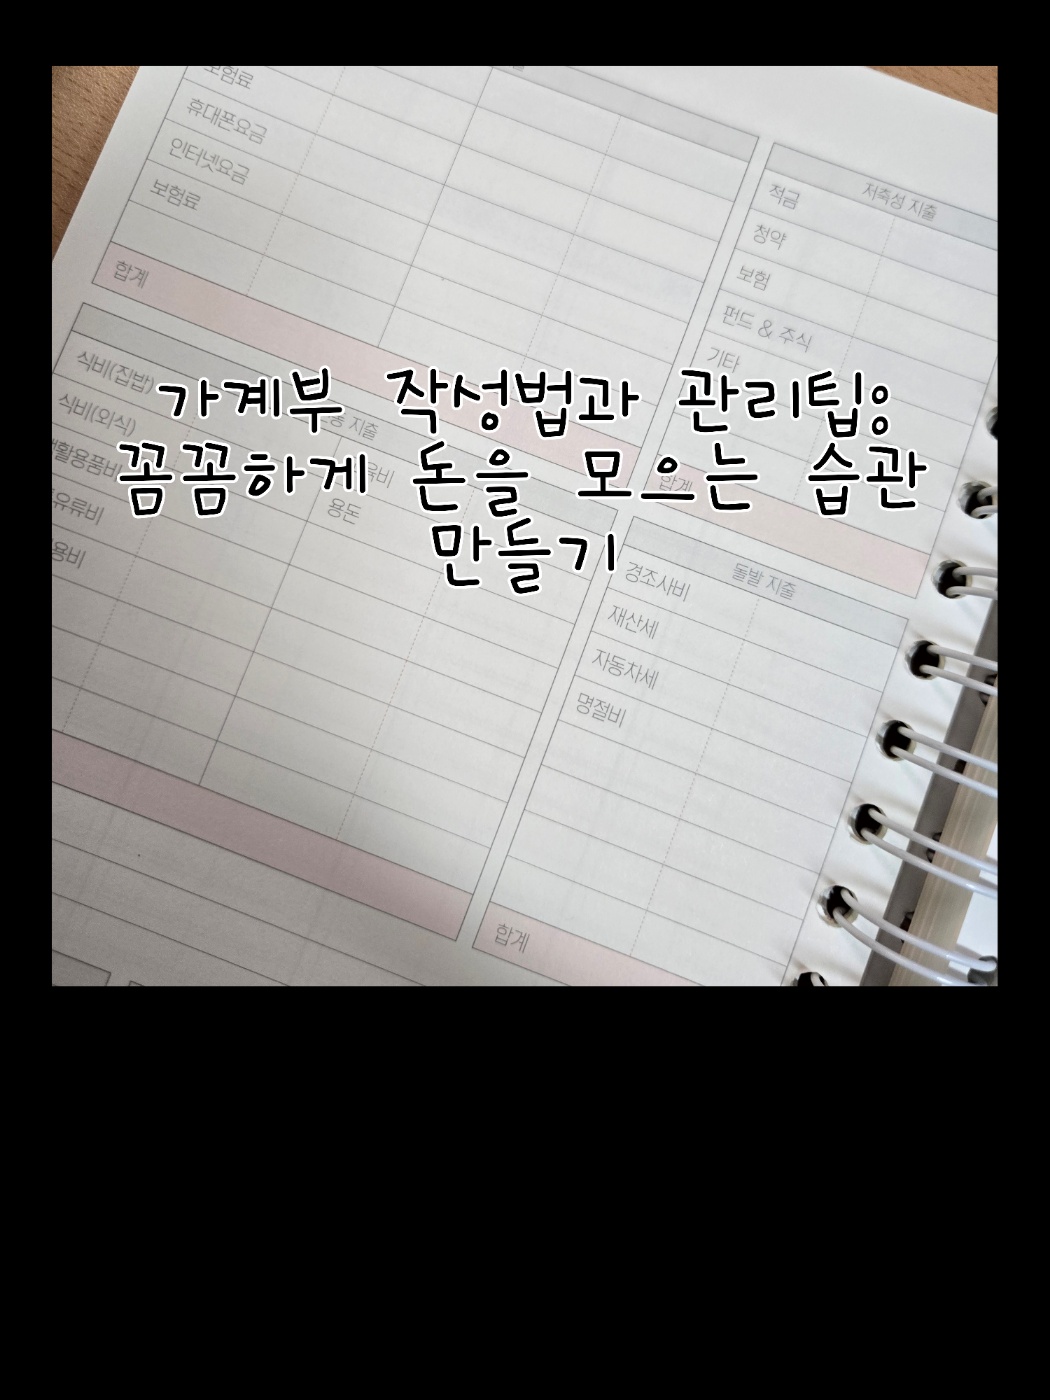 보험료
휴대폰요금
인터넷요금
보험료
합계
저축성 지출
적금
청약
보험
펀드 & 주식
기타
합계
가계부 작성법과 관리팁:
꼼꼼하게 돈을 모으는 습관
만들기
지출
식비(집밥)
식비(외식)
용돈
돌발 지출
경조사비
재산세
자동차세
명절비
합계